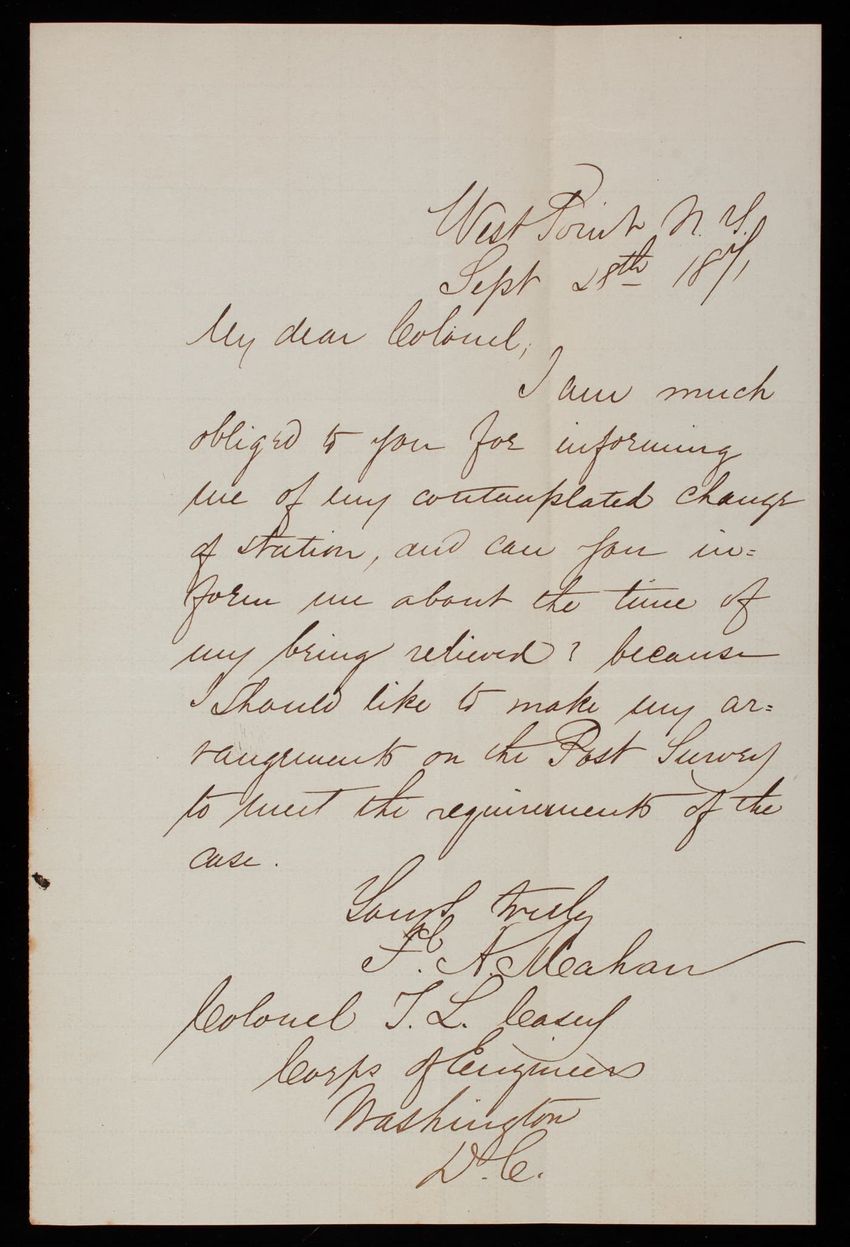 West Point N. Y.
Sept 28th 1871
My dear Colonel,
I am much
obliged to you for informing
me of my contemplated change
of station, and can you in=
form me about the time of
my being relieved? because
I should like to make my ar=
rangements on the Post Survey
to meet the requirements of the
case.
Yours truly
F. A. Mahan
Colonel T. L. Casey
Corps of Engineers
Washington
D. C.